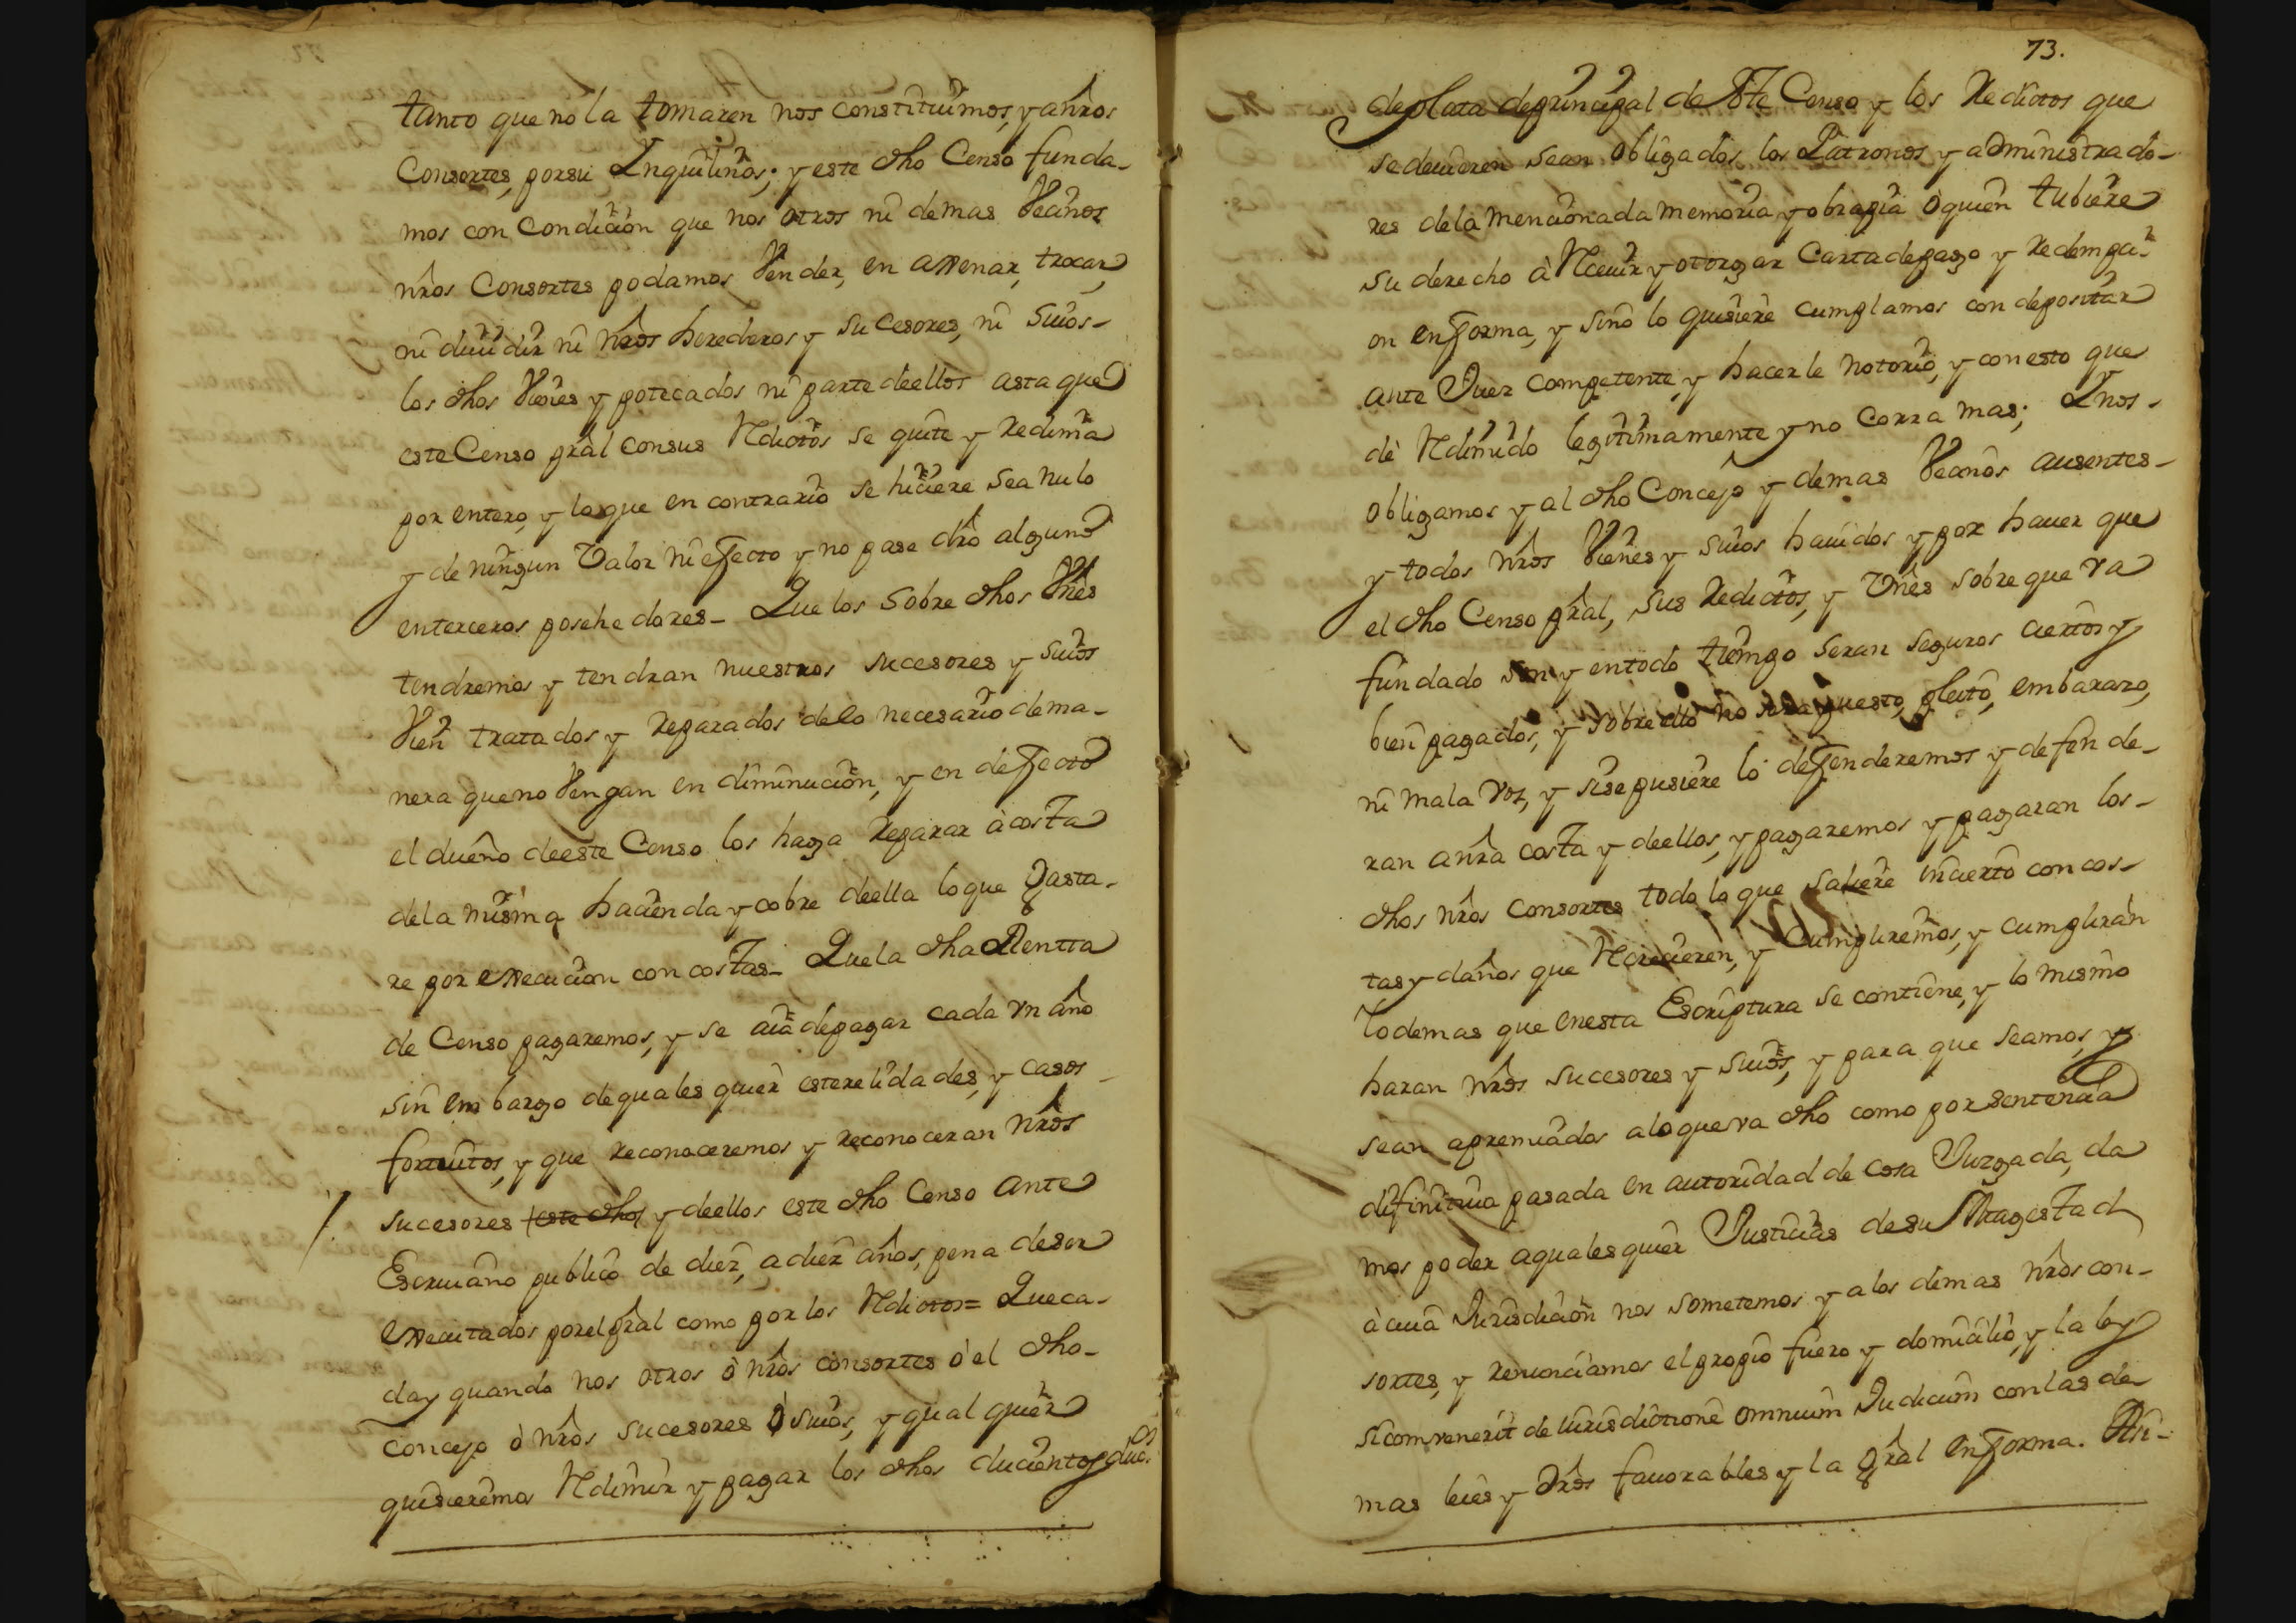 tanto que no la tomaren nos constituimos, y a nros
Consortes, por su Ynquilinos; y este dho Censo funda-
mos con Condicion que nos otros ni demas Vecinos
nros Consortes podamos Vender, en axenar, trocar,
ni diuidir ni nros herederos y sucesores, ni suios-
los dhos Vienes ypotecados ni parte deellos asta que
este Censo pral con sus Redictos se quite y Redima
por entero, y lo que en contrario se hiciere sea nulo
y de ningun Valor ni efecto y no pase dro alguno
enterceros posehedores- Que los sobre dhos Vnes
tendremos y tendran nuestros sucesores y suios
Vien tratados y Reparados de lo necesario dema-
nera que no Vengan en diminucion, y en defecto
el dueño deeste Censo los haga Reparar à costa
dela misma hacienda y cobre deella lo que gasta-
re por execucion con costas- Que la dha Rentta
de Censo pagaremos, y se aia de pagar cada vn año
sin embargo de quales quier esterelidades, y casos
fortuitos, y que Reconoceremos y Reconoceran nros
sucesores (este dho) y deellos este dho Censo ante
Escriuano publico de diez, a diez años, pena de ser
executados por el pral como por los Redictos= Que ca-
day quando nos otros ò nros consortes ò el dho-
concejo ò nros sucesores ò suios, y qual quier
quisieremos Redimir y pagar los dhos ducientos ducs
73.
de plata de principal de este Censo y los Redictos que
se deuieren sean obligados los Patronos y administrado-
res de la mencionada memoria y obra pia ò quien tubiere
su derecho à Receuir y otorgar Carta de pago y Redempci-
on en forma, y sino lo quisiere cumplamos con depositar
ante Juez competente, y hacerle notorio, y con esto que
dè Redimido legitimamente y no corra mas; Ynos-
obligamos y al dho Concejo y demas Vecinos ausentes-
y todos nros Vienes y suios hauidos y por hauer que
el dho Censo pral, sus Redictos, y Vnes sobre que va
fundado son y en todo tiempo seran seguros ciertos y
bien pagados, y sobre ello no sera puesto pleito, embarazo,
ni mala voz, y si se pusiere lo defenderemos y defende-
ran a nra costa y deellos, y pagaremos y pagaran los-
dhos nros consortes todo lo que saliere incierto con cos-
tas y daños que Recrecieren, y Cumpliremos, y cumpliràn
lo demas que en esta Escriptura se contiene, y lo mismo
haran nros sucesores y suios, y para que seamos, y
sean apremiados a lo que va dho como por sentencia
difinitiua pasada en autoridad de cosa Juzgada, da
mos poder a quales quier Justicias de su Magestad
à cuia Jurisdicion nos sometemos y a los demas nros con-
sortes, y renunciamos el propio fuero y domicilio, y la ley
sicomvenerit de iurisdictione omnium Judicum con las de
mas leies y dros fauorables y la gral en forma. Asi-